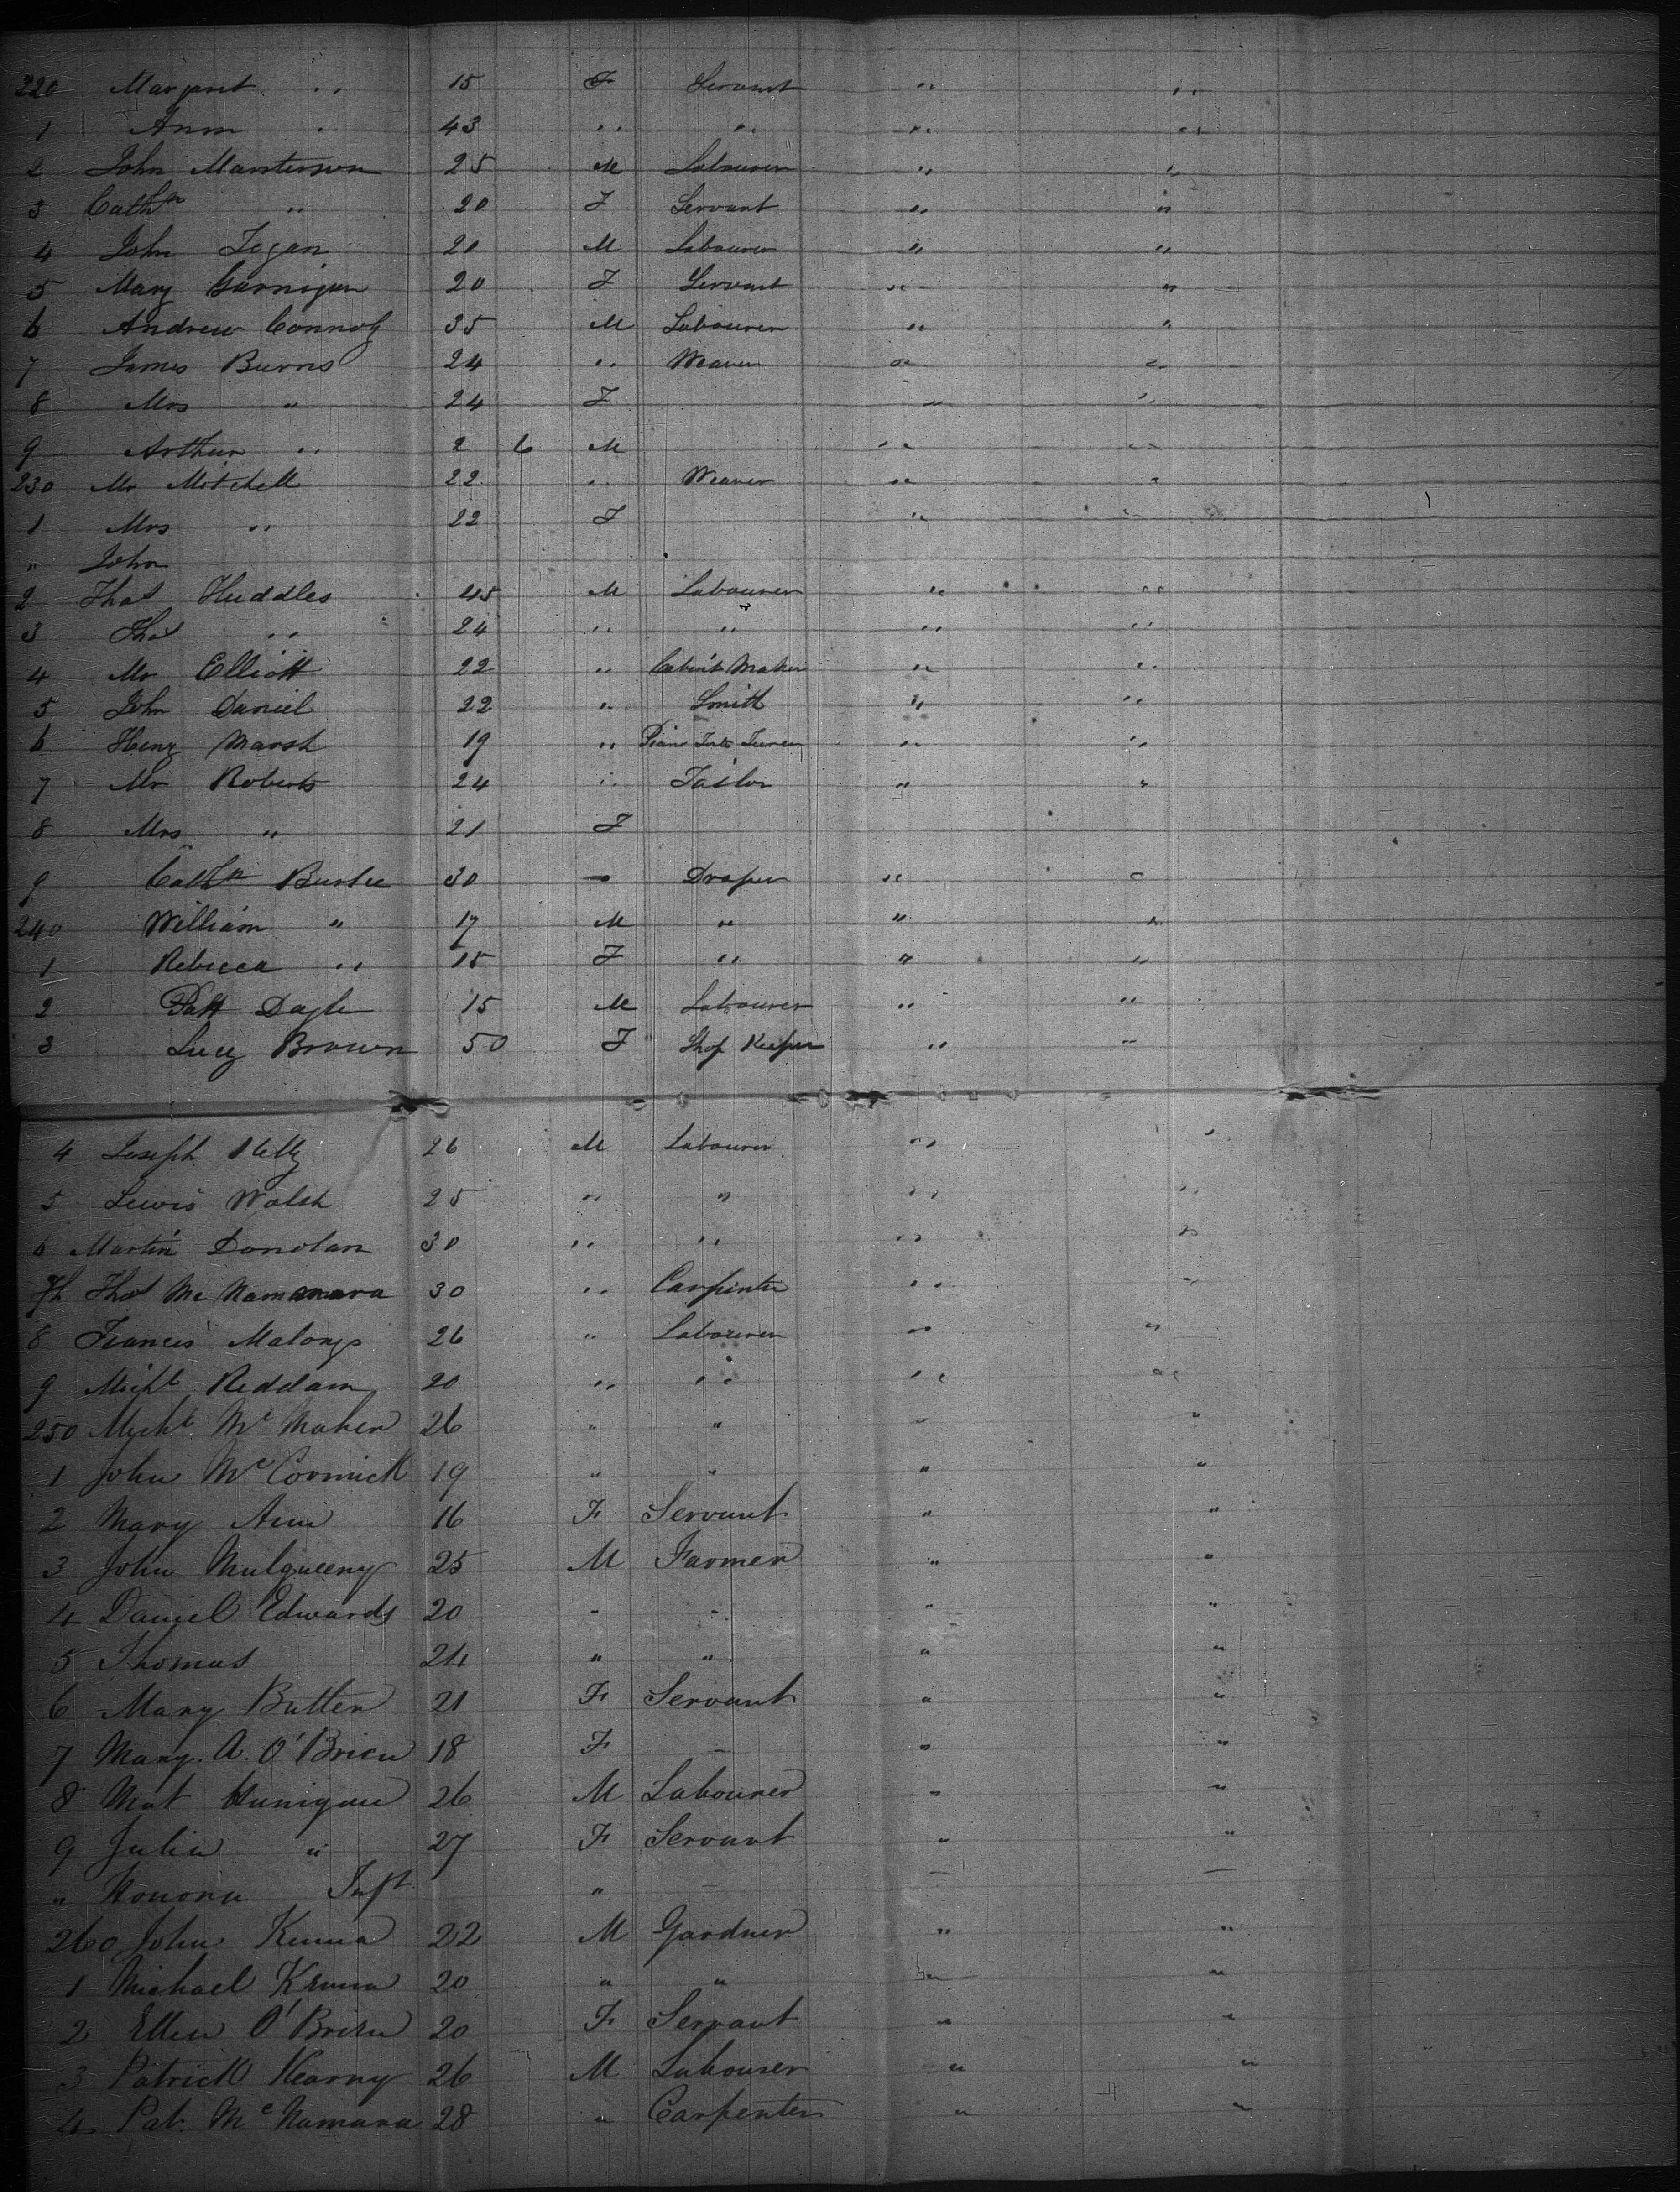 220 Margaret " 15 F Servant " "
1 Ann " 43 " " " "
2 John Masterson 25 M Labourer " "
3 Cathn " 20 F Servant " "
4 John Fegan 20 M Labourer " "
5 Mary Garnigan 20 F Servant " "
6 Andrew Connoly 35 M Labourer " "
7 James Burns 24 " Weaver " "
8 Mrs " 24 F " "
9 Arthur " 2 6 M " "
230 Mr Mitchell 22 " Weaver " "
1 Mrs " 22 F " "
" John
2 Thos Huddles 45 M Labourer " "
3 Thos " 24 " " " "
4 Mr Elliott 22 " Cabint Maker " "
5 John Daniel 22 " Smith " "
6 Heny Marsh 19 " Piano Forte Tuner " "
7 Mr Roberts 24 " Tailor " "
8 Mrs " 21 F
9 Cathn 30 - Draper " "
240 William " 17 M " " "
1 Rebecca " 15 F " " "
2 Patt Dayle 15 M Labourer " "
3 Lucy Brown 50 F Shop Keeper " "
4 Joseph Kelly 26 M Labourer " "
5 Lewis Walsh 25 " " " "
6 Martin Donolan 30 " " " "
7 Thos Mc Namara 30 " Carpinter " "
8 Francis Malony 26 " Labourer " "
9 Michl Reddam 20 " " " "
250 Michl Mc Maher 26 " " " "
1 John Mc Cormick 19 " " " "
2 Mary Ann 16 F Servant " "
3 John Mulqueeny 25 M Farmer " "
4 Daniel Edwards 20 - - " "
5 Thomas 24 " " " "
6 Mary Butler 21 F Servant " "
7 Mary. A. O'Brien 18 F - " "
8 Mat Hunigan 26 M Labourer " "
9 Julia " 27 F Servant " "
" Honora Inft " - - -
260 John Kenna 22 M Gardner " "
1 Michael Kenna 20 " " " "
2 Ellen O'Brien 20 F Servant " "
3 Patrick Kearny 26 M Labourer " "
4 Pat. Mc Namara 28 " Carpenter " "